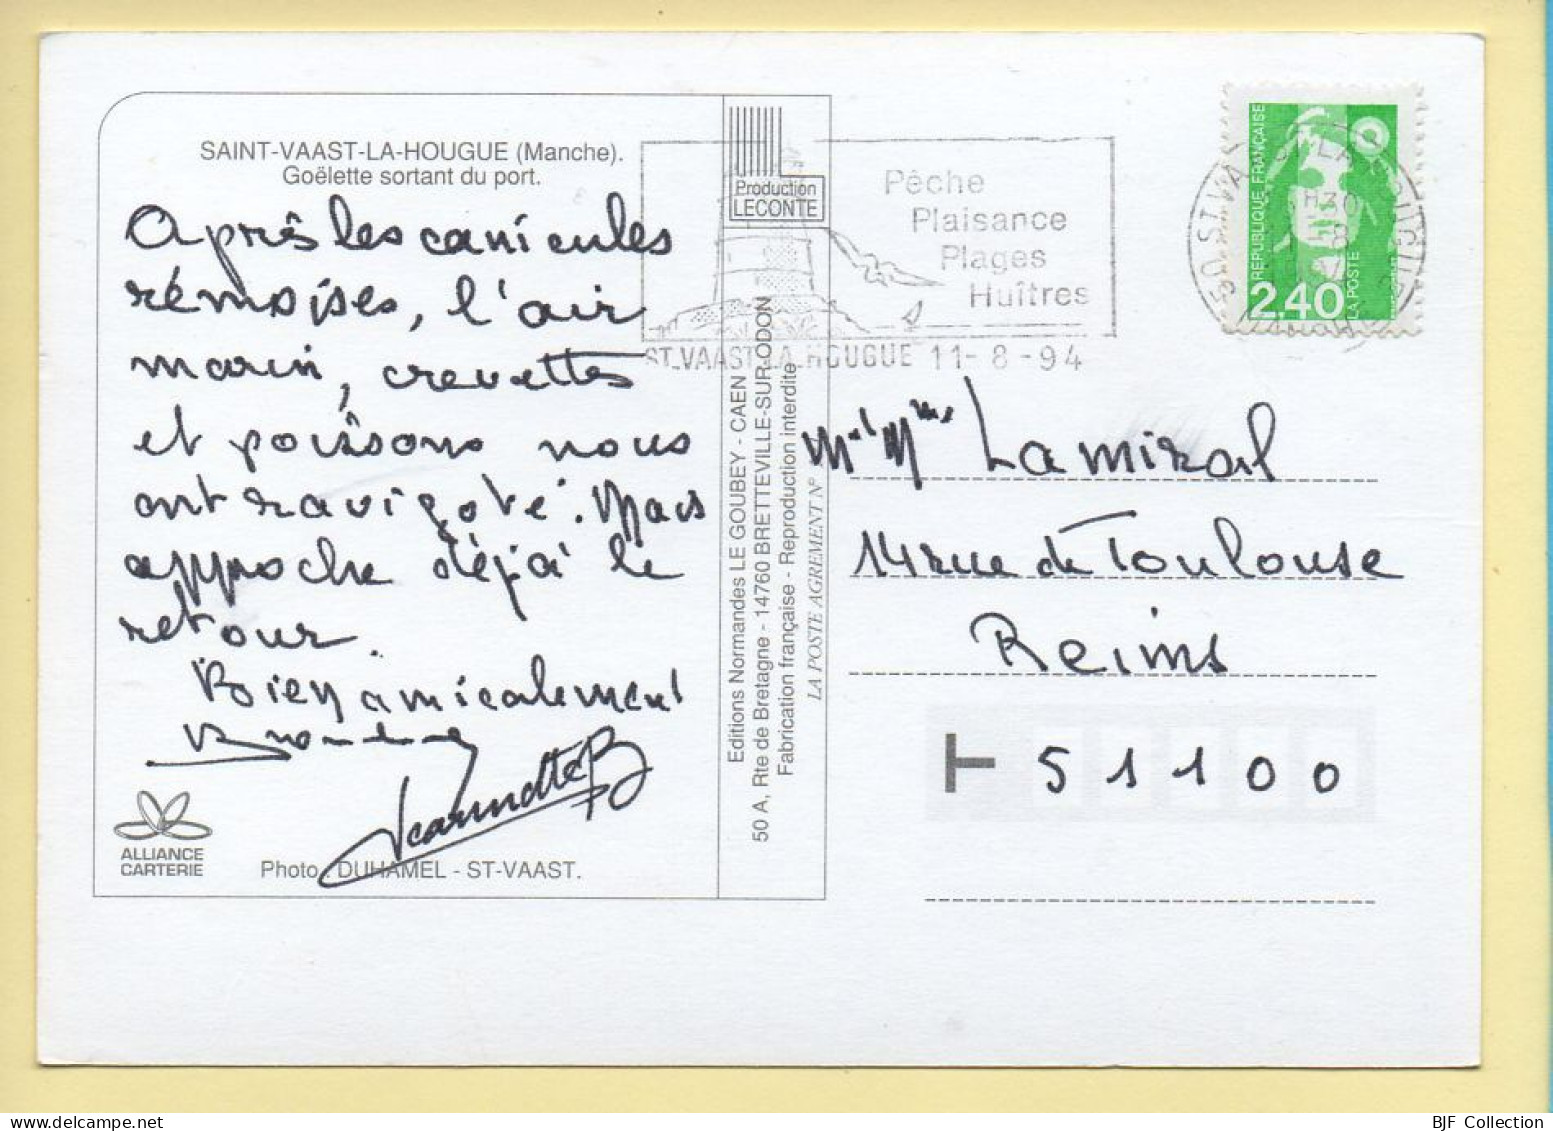 SAINT-VAAST-LA-HOUGUE (Manche).
Goëlette sortant du port.
Après les canicules
rémoises, l'air
marin, crevettes
et poissons nous
ont ravigoté. Mais
approche déjà le
retour.
Bien amicalement
Jeannette B
ALLIANCE
CARTERIE
Photo : DUHAMEL - ST-VAAST.
Production
LECONTE
Editions Normandes LE GOUBEY - CAEN
50 A, Rte de Bretagne - 14760 BRETTEVILLE-SUR-ODON
Fabrication française - Reproduction interdite
LA POSTE AGREMENT N°
Pêche
Plaisance
Plages
Huîtres
ST.VAAST LA HOUGUE 11-8-94
50 ST VAAST LA HOUGUE
MANCHE
RÉPUBLIQUE FRANÇAISE
2,40
LA POSTE
Mr Mme Lamiral
14 rue de Toulouse
Reims
T 51100
BJF Collection